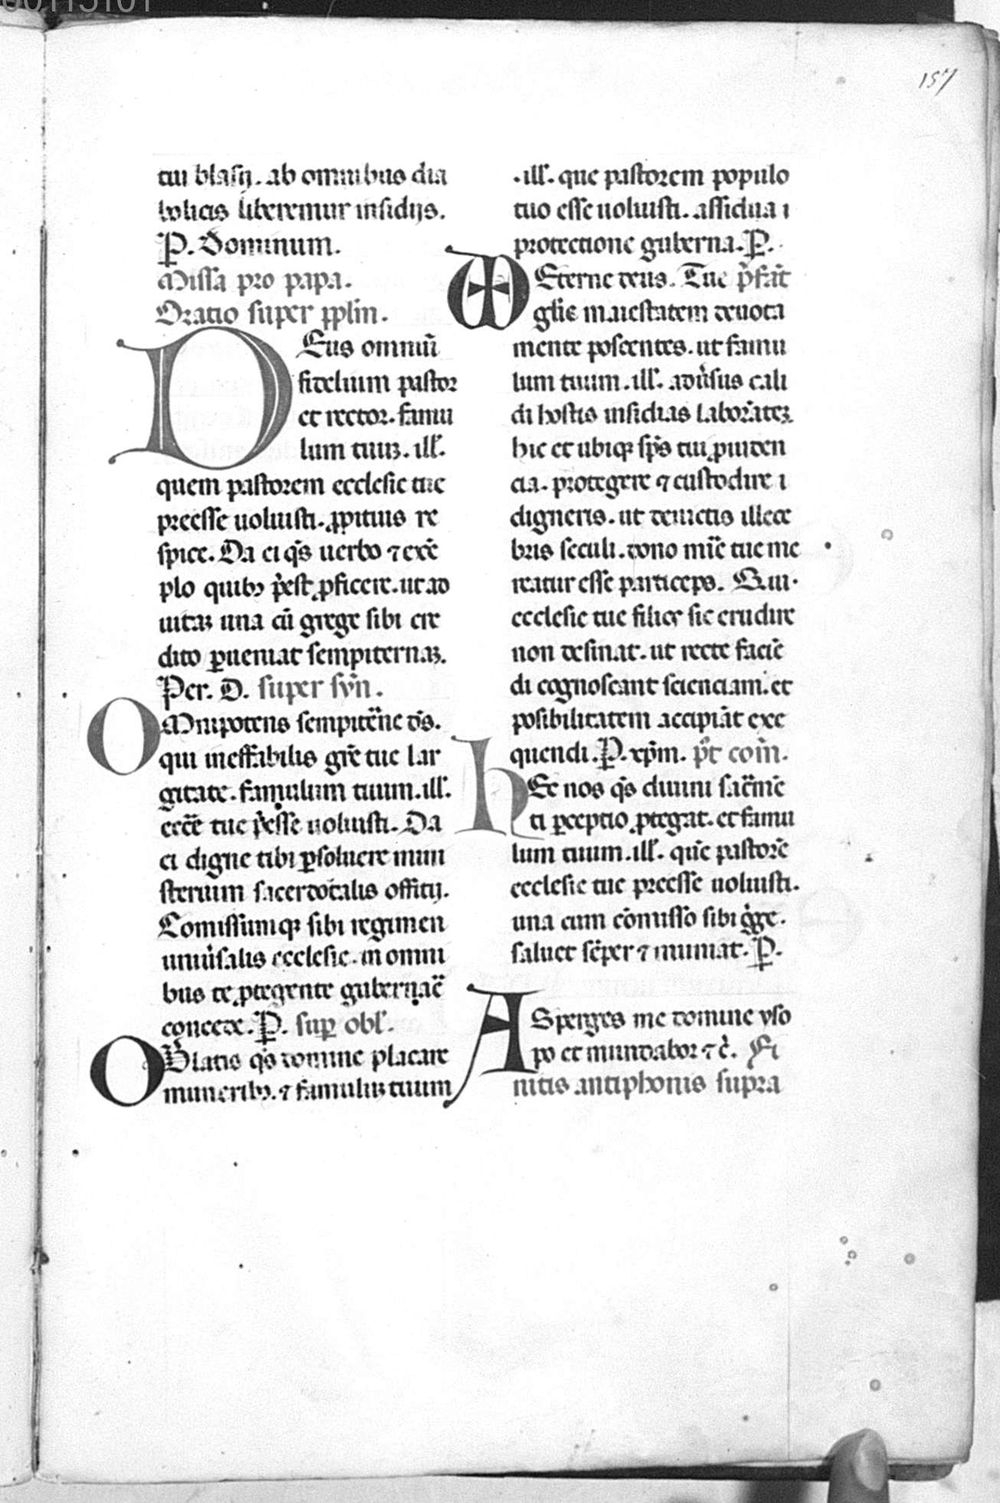 157
tui blasij. ab omnibus dia
bolicis liberemur insidijs.
P. Dominum.
Missa pro papa.
Oratio super pplm.
DEus omniũ
fidelium pastor
et rector. famu
lum tuuʒ. ill.
quem pastorem ecclesie tue
preesse uoluisti. ꝓpitius re
spice. Da ei qs̃ uerbo ⁊ exẽ
plo quibꝫ p̃est ꝓficere. ut ad
uitaʒ una cũ grege sibi cre
dito ꝑueniat sempiternaʒ.
Per. D. super syñ.
OMnipotens sempitẽne ds̃.
qui ineffabilis gr̃e tue lar
gitate. famulum tuum. ill.
eccẽ tue p̃esse uoluisti. Da
ei digne tibi ꝑsoluere mini
sterium sacerdotalis offitij.
Comissumqꝫ sibi regimen
uniũsalis ecclesie. in omni
bus te ꝓtegente gubernac̃e
concede. P. suꝑ obl̃.
OBlatis qs̃ domine placare
muneribꝫ. ⁊ famuluʒ tuum
.ill. que pastorem populo
tuo esse uoluisti. assidua i
protectione guberna. P.
Eterne deus. Tue p̃fat̃
gl̃ie maiestatem deuota
mente poscentes. ut famu
lum tuum .ill. adũsus cali
di hostis insidias laborãteʒ
hic et ubiqꝫ sp̃s tui ꝓuiden
cia. protegere ⁊ custodire i
digneris. ut deuictis illece
bris seculi. dono mĩe tue me
reatur esse particeps. Qui.
ecclesie tue filios sic erudire
non desinat. ut recte faciẽ
di cognoscant scienciam. et
posibilitatem accipiãt exe
quendi. P. xp̃m. p̃t com̃.
hEc nos qs̃ diuini sac̃mẽ
ti ꝑceptio ꝓtegat. et famu
lum tuum .ill. quẽ pastorẽ
ecclesie tue preesse uoluisti.
una cum cõmisso sibi gg̃e.
saluet sẽper ⁊ muniat. P.
ASperges me domine yso
po et mundabor ⁊ c̃. Fi
nitis antiphonis supra